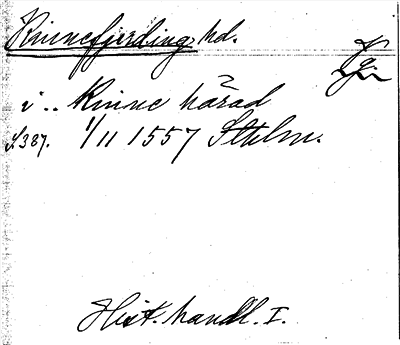 Kinnefjerding hd.
Vg.
i .. Kinne härad
s. 387. 1/11 1557 Sthlm.
Hist. handl. I.